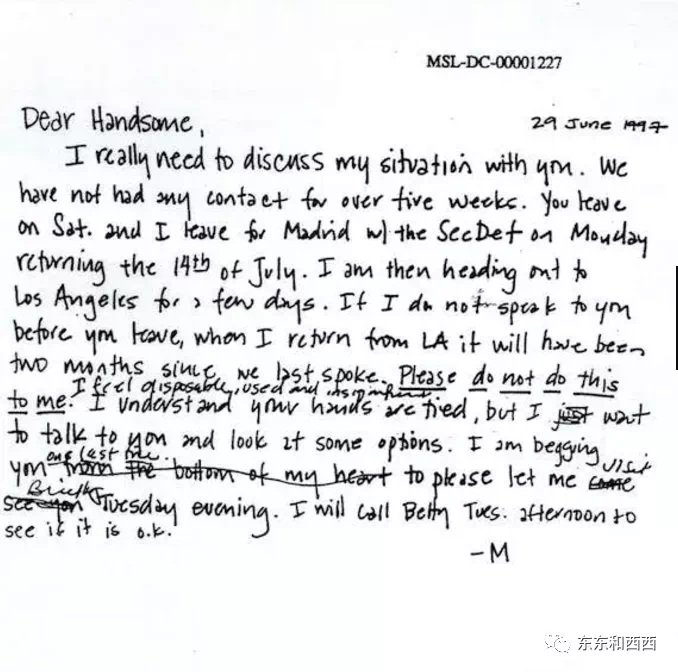 MSL-DC-00001227
29 June 1997
Dear Handsome,
I really need to discuss my situation with you. We
have not had any contact for over five weeks. You leave
on Sat. and I leave for Madrid w/ the SecDef on Monday
returning the 14th of July. I am then heading out to
Los Angeles for a few days. If I do not speak to you
before you leave, when I return from LA it will have been
two months since we last spoke. Please do not do this
I feel disposable, used and insignificant
to me. I understand your hands are tied, but I just want
to talk to you and look at some options. I am begging
one last time visit
you from the bottom of my heart to please let me come
Briefly
see you Tuesday evening. I will call Betty Tues. afternoon to
see if it is o.k.
-M
东东和西西